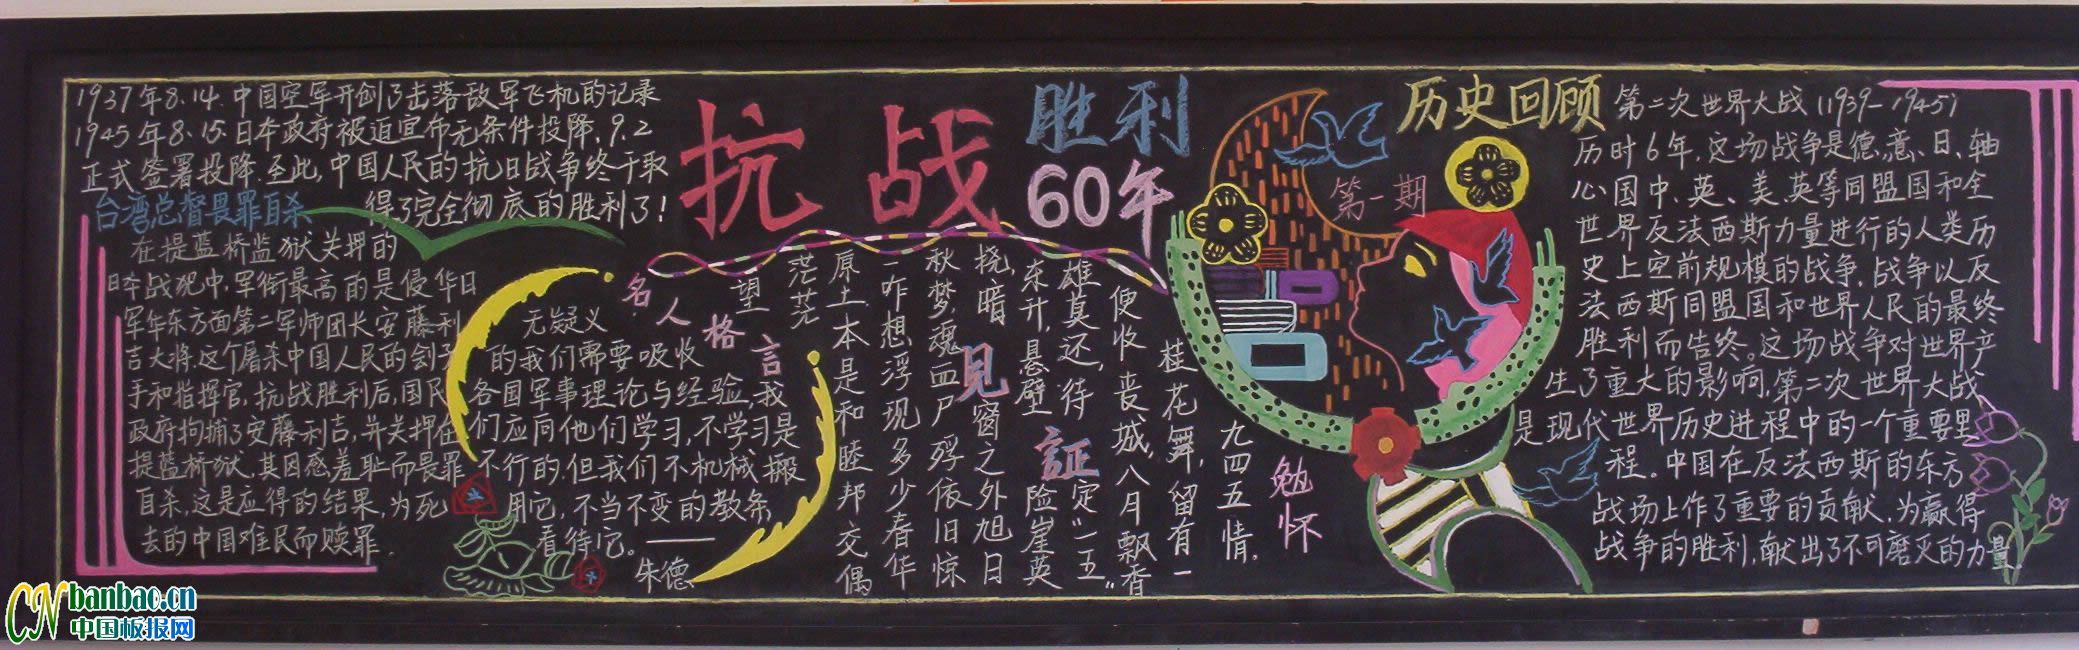 1937年8.14.中国空军开创了击落敌军飞机的记录
1945年8.15.日本政府被迫宣布无条件投降,9.2
正式签署投降.至此,中国人民的抗日战争终于取
得了完全彻底的胜利了!
台湾总督畏罪自杀
在提蓝桥监狱关押的
日本战犯中,军衔最高的是侵华日
军华东方面第二军师团长安藤利
吉大将.这个屠杀中国人民的刽子
手和指挥官,抗战胜利后,国民
政府拘捕了安藤利吉,并关押在
提蓝桥狱.其因感羞耻而畏罪
自杀,这是应得的结果,为死
去的中国难民而赎罪.
抗战
胜利
60年
名人格言
无疑义
的我们需要吸收
各国军事理论与经验,我
们应向他们学习,不学习是
不行的.但我们不机械搬
用它,不当不变的教条
看待它。——
朱德
见証
勉怀
九四五情.
桂花舞,留有一
便收丧城,八月飘香
雄莫还,待定"一五"
东升,悬壁险崖英
挠,暗窗之外旭日
秋梦,魂血尸殍依旧惊
昨想浮现多少春华
原土本是和睦邦交偶
茫茫
望
第一期
历史回顾
第二次世界大战(1939-1945)
历时6年,这场战争是德、意、日、轴
心国中、英、美、英等同盟国和全
世界反法西斯力量进行的人类历
史上空前规模的战争,战争以反
法西斯同盟国和世界人民的最终
胜利而告终。这场战争对世界产
生了重大的影响,第二次世界大战
是现代世界历史进程中的一个重要里
程。中国在反法西斯的东方
战场上作了重要的贡献,为赢得
战争的胜利,献出了不可磨灭的力量.
CN banbao.cn
中国板报网